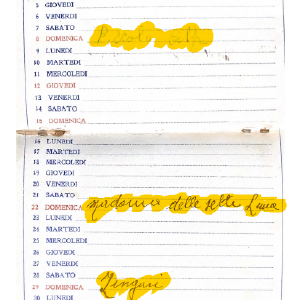 5 GIOVEDI
6 VENERDI
7 SABATO
8 DOMENICA
9 LUNEDI
10 MARTEDI
11 MERCOLEDI
12 GIOVEDI
13 VENERDI
14 SABATO
15 DOMENICA
16 LUNEDI
17 MARTEDI
18 MERCOLEDI
19 GIOVEDI
20 VENERDI
21 SABATO
22 DOMENICA madonna delle sette Lune
23 LUNEDI
24 MARTEDI
25 MERCOLEDI
26 GIOVEDI
27 VENERDI
28 SABATO Zingari
29 DOMENICA
30 LUNEDI